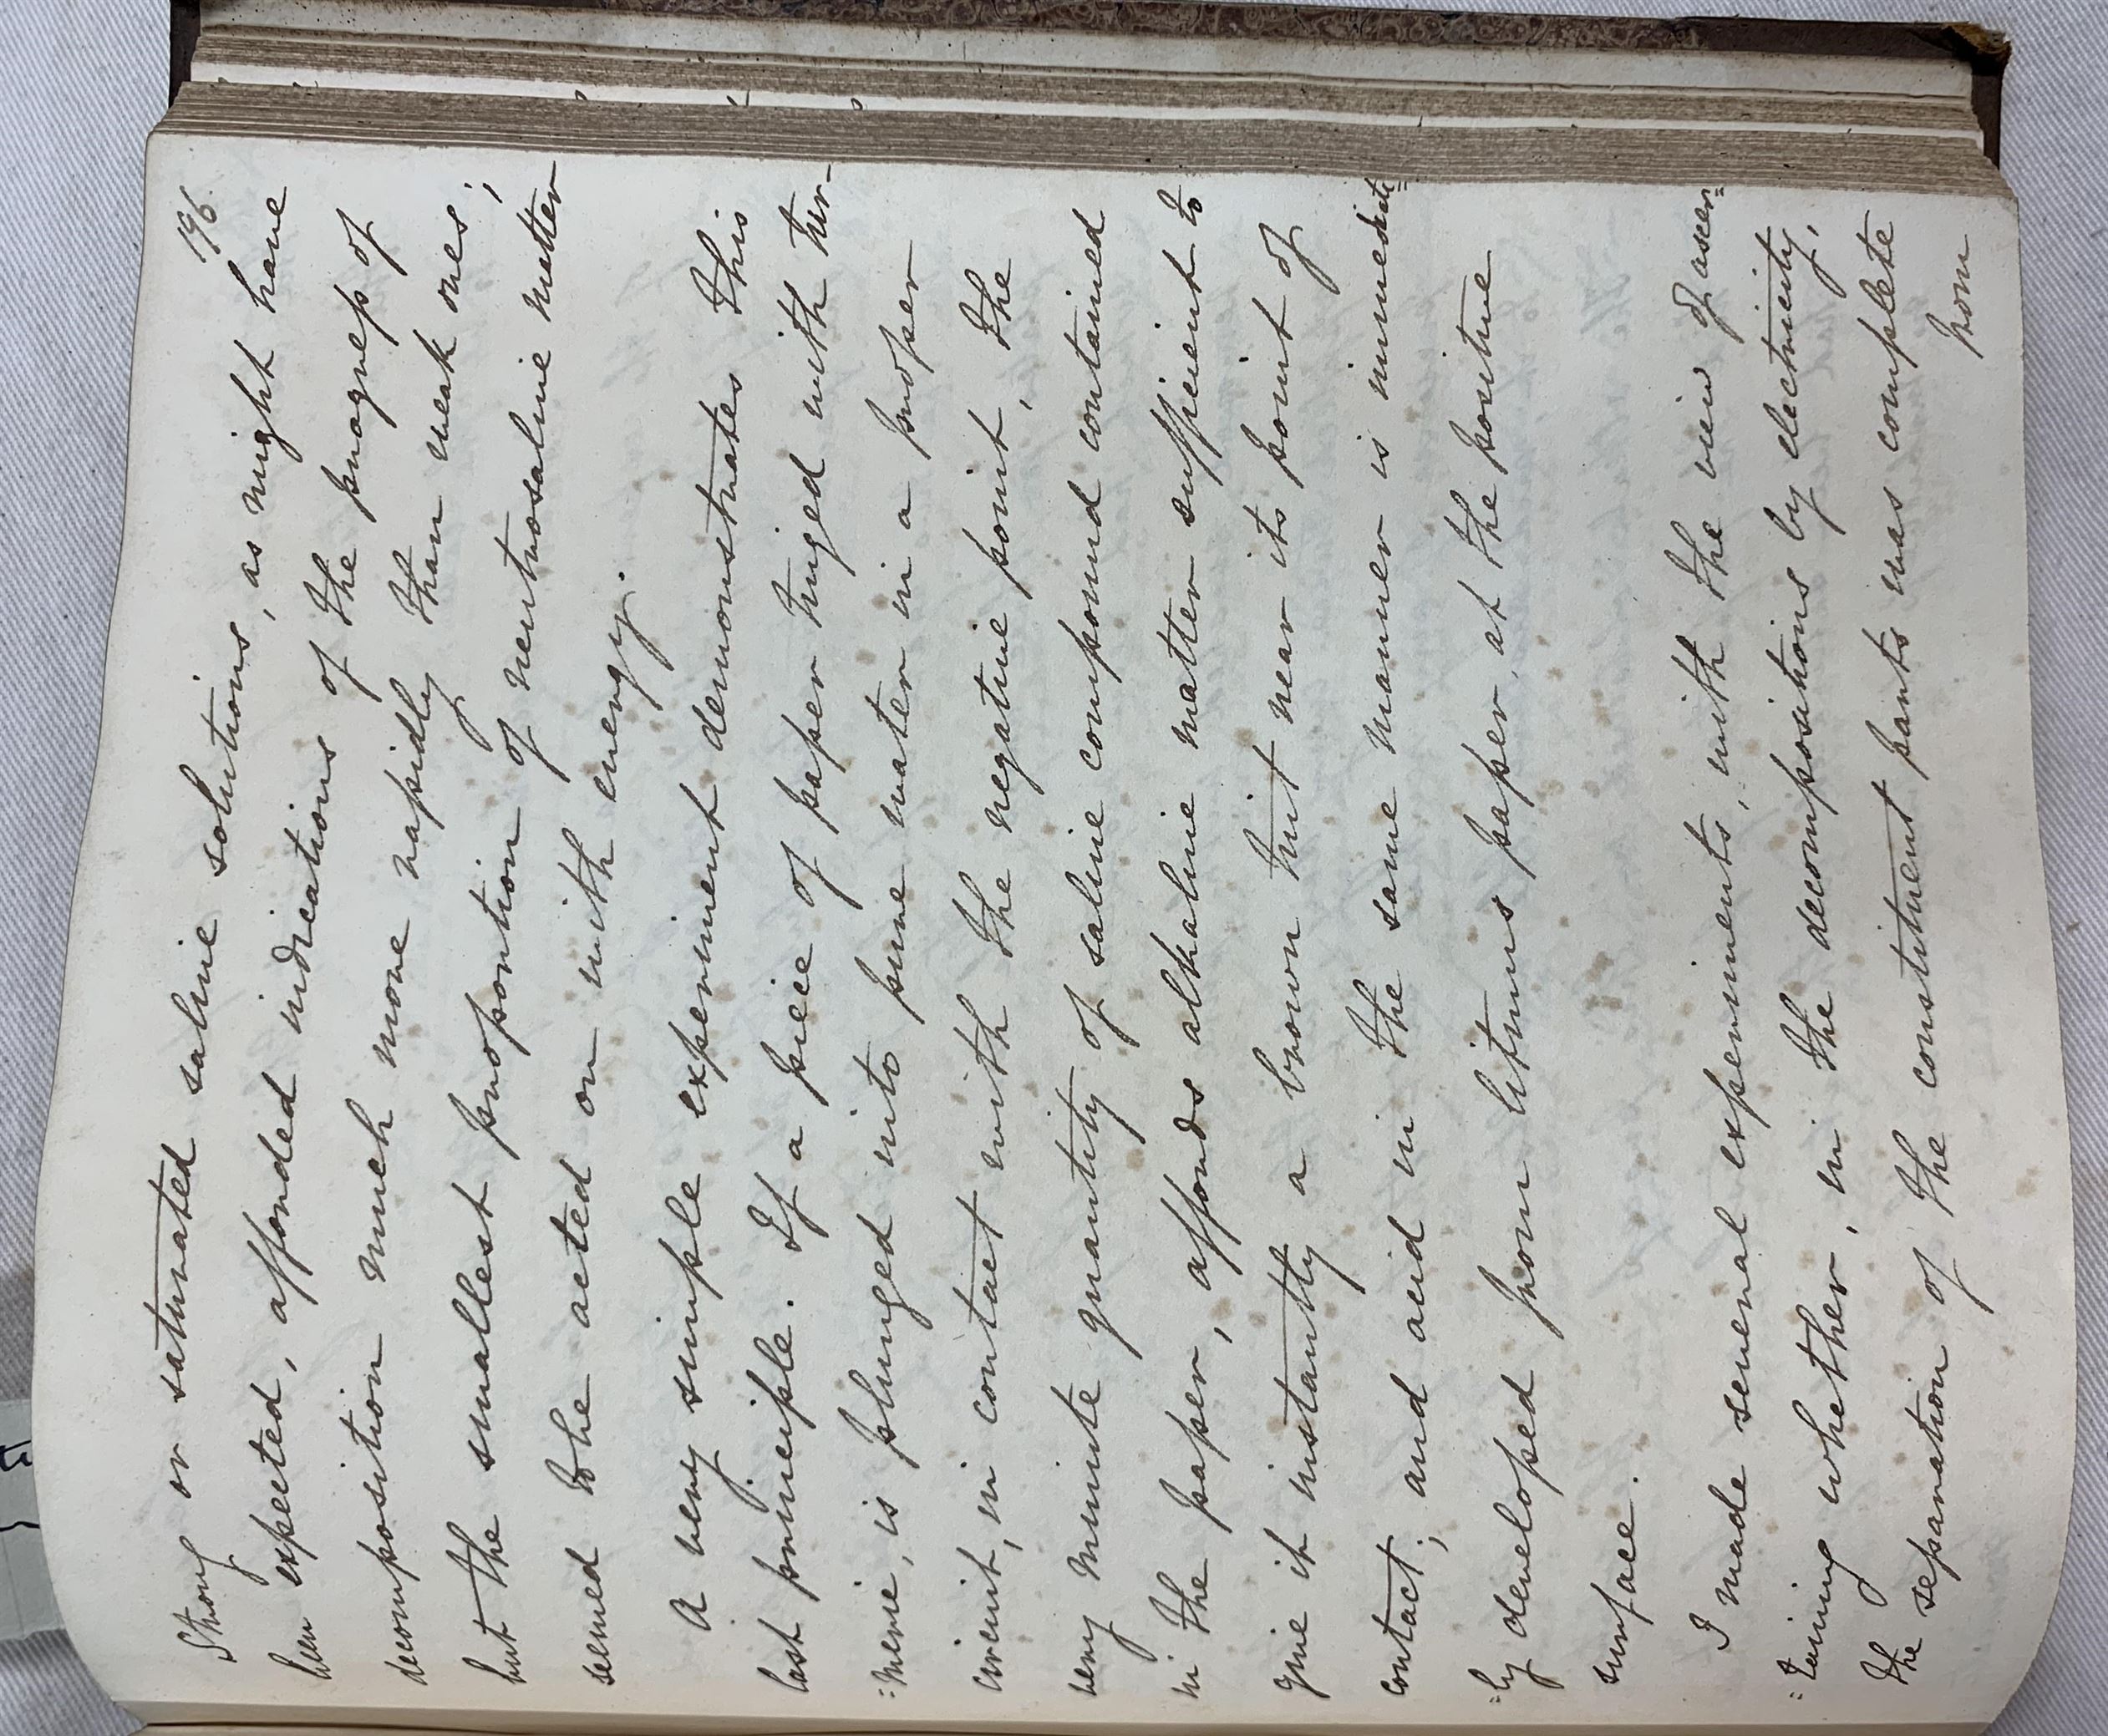 196.
Strong or saturated saline solutions, as might have
been expected, afforded indications of the progress of
decomposition much more rapidly than weak ones;
but the smallest proportion of neutrosaline matter
seemed to be acted on with energy.
A very simple experiment demonstrates this
last principle. If a piece of paper tinged with tur-
=meric, is plunged into pure water in a proper
circuit, in contact with the negative point, the
very minute quantity of saline compound contained
in the paper, affords alkaline matter sufficient to
give it instantly a brown tint near its point of
contact; and acid in the same manner is immediate=
=ly developed from litmus paper, at the positive
surface.
I made several experiments, with the view of ascer=
=taining whether, in the decompositions by electricity,
the separation of the constituent parts was complete
from